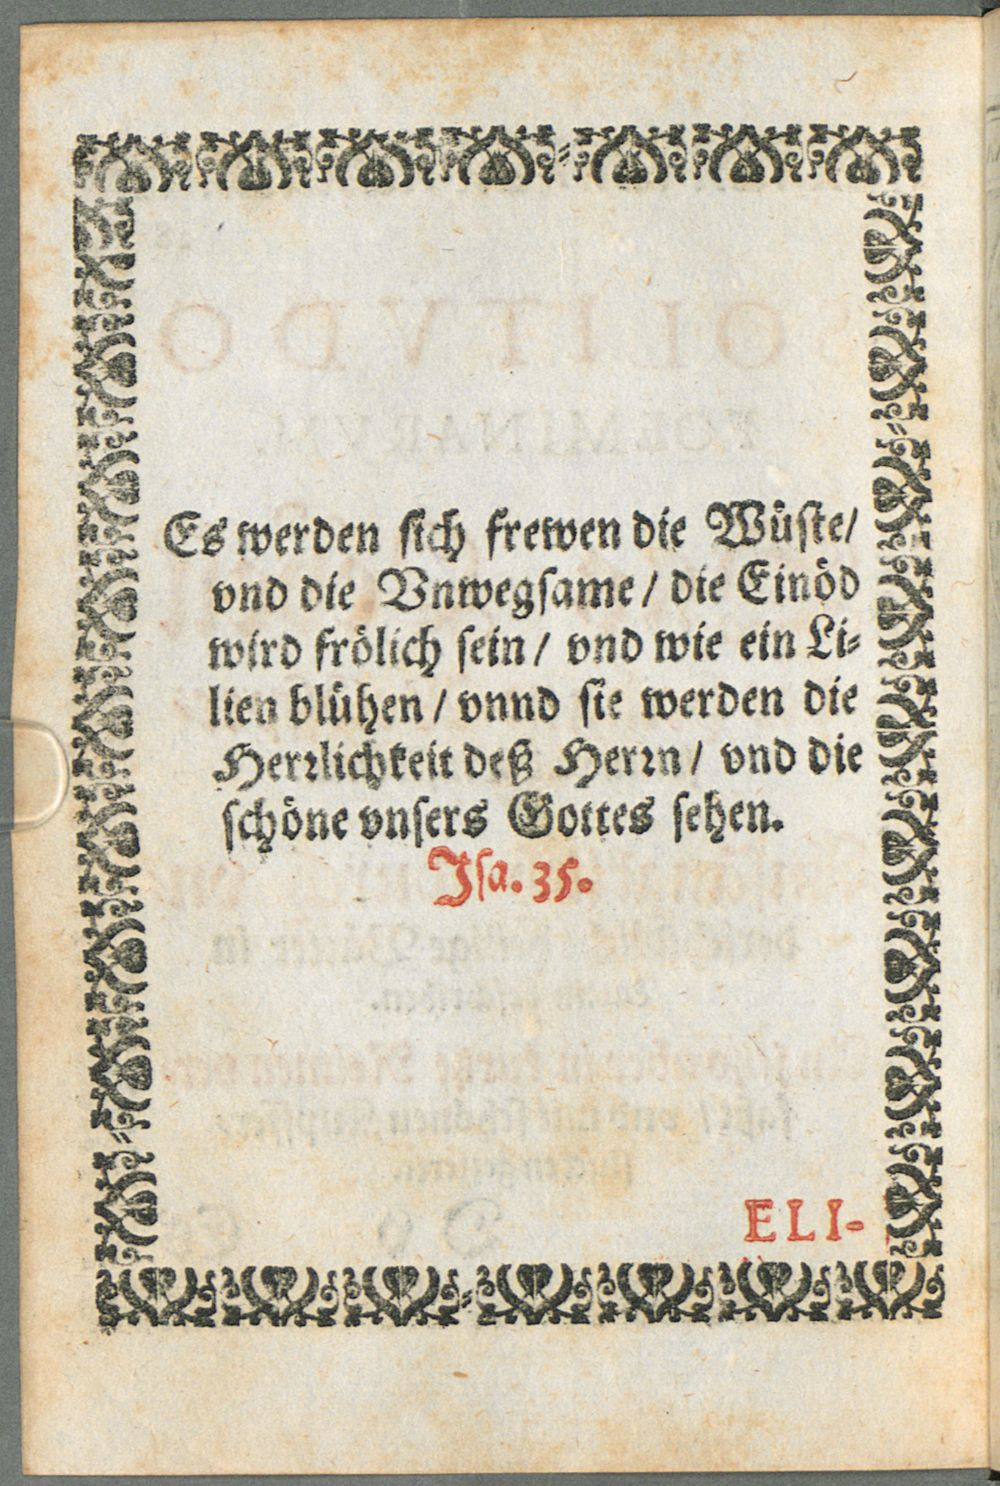 Es werden sich frewen die Wüste/
vnd die Vnwegsame / die Einöd
wird frölich sein / vnd wie ein Li⸗
lien blühen / vnnd sie werden die
Herrlichkeit deß Herrn / vnd die
schöne vnsers Gottes sehen.
Isa. 35.
ELI-